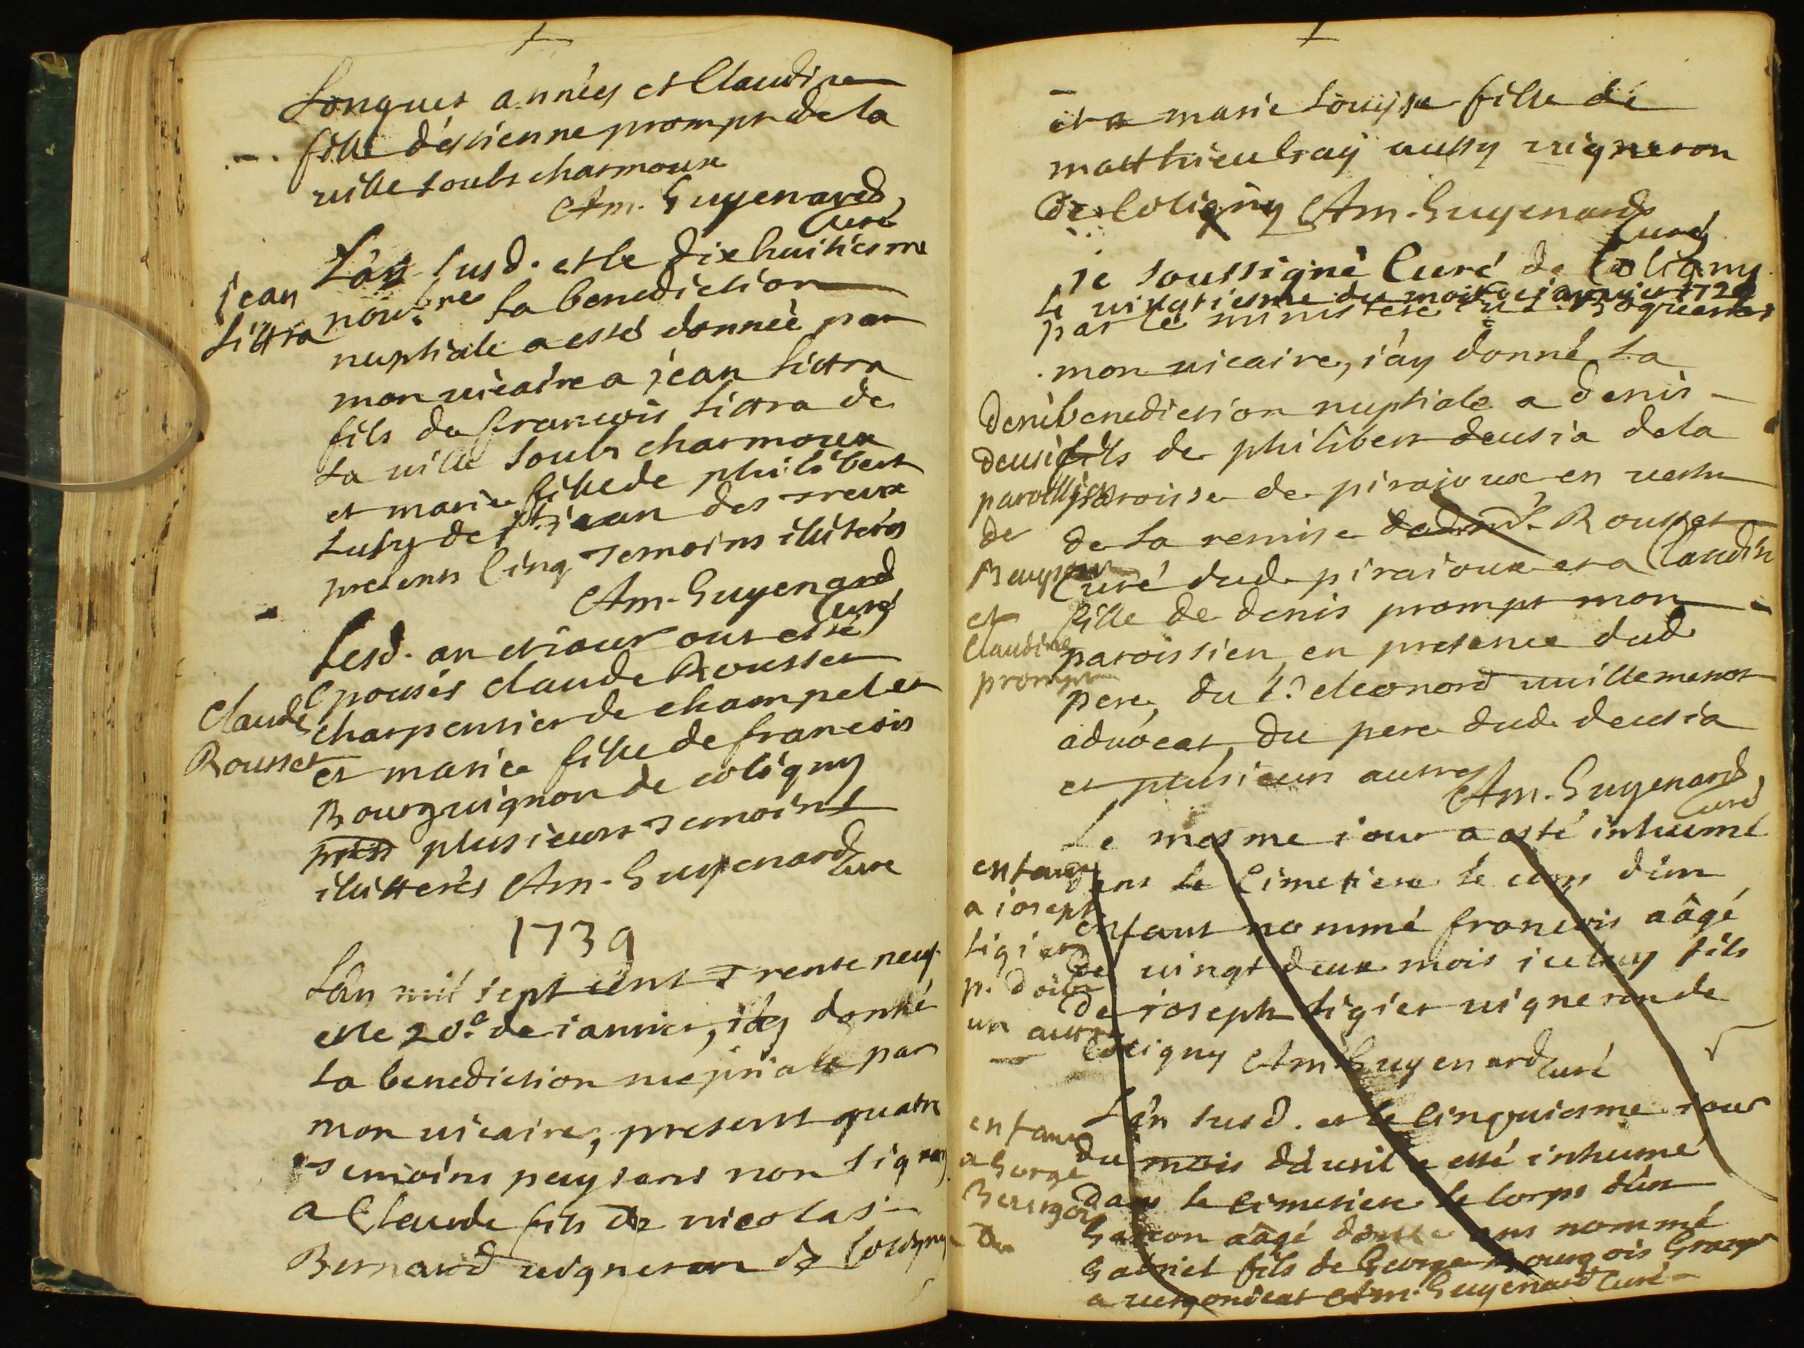 Longues années et Claudine
fille d'estienne prompt de la
ville soubs charmoux
Am. Guyenard
Curé
L'an susd. et le dixhuitiesme
jean
Littra
nou.bre la benediction
nuptiale a esté donnée par
mon vicaire a jean Littra
fils de francois Littra de
la ville soubs charmoux
et marie fille de philibert
de st jean des treux
presents cinq temoins iliterés
Am. Guyenard
Curé
Lesd. an et iour ont esté
Claude
Rousset
epousés claude Rousset
charpentier de champel et
et marie fille de francois
Bourguignon de coligny
plusieurs temoins
ilitterés Am. Guyenard
Curé
1739
L'an mil sept cent trente neuf
et le 20.e de ianvier, i'ay donné
la benediction nuptiale par
mon vicaire, present quatre
temoins paysans non sig
a Claude fils de nicolas
Bernard vigneron de Coligny
et a marie Louyse fille de
matthieu bray aussy vigneron
de Coligny Am. Guyenard
Curé
je soussigné Curé de Coligny
le vingtiesme du mois de ianvier 1729
par le ministere du
mon vicaire, i'ay donné la
benediction nuptiale a denis
denis
deusia
paroisse
de
Beaupont
et
Claudine
prompt
fils de philibert deusia de la
paroisse de pirajoux en vertu
de la remise de mr. Rousset
Curé dud. pirajoux et a Claudine
fille de denis prompt mon
paroissien, en presence dud.
pere, du s.r eleonord vuillemenot
advocat, du pere dud. deusia
et plusieurs autres
Am. Guyenard
Curé
Le mesme iour a esté inhumé
enfant
a joseph
ligier
p. doit
un autre
dans le Cimetiere le corps d'un
enfant nommé francois aâgé
de vingt deux mois iceluy fils
de joseph ligier vigneron de
Coligny Am. Guyenard Curé
L'an susd. et le cinquiesme iour
enfant
a George
Bourgois
du mois d'avril a esté inhumé
dans le cimetiere le corps d'un
Garcon aâgé ans nommé
Gabriel fils de George Bourgois Granger
a Am. Guyenard Curé